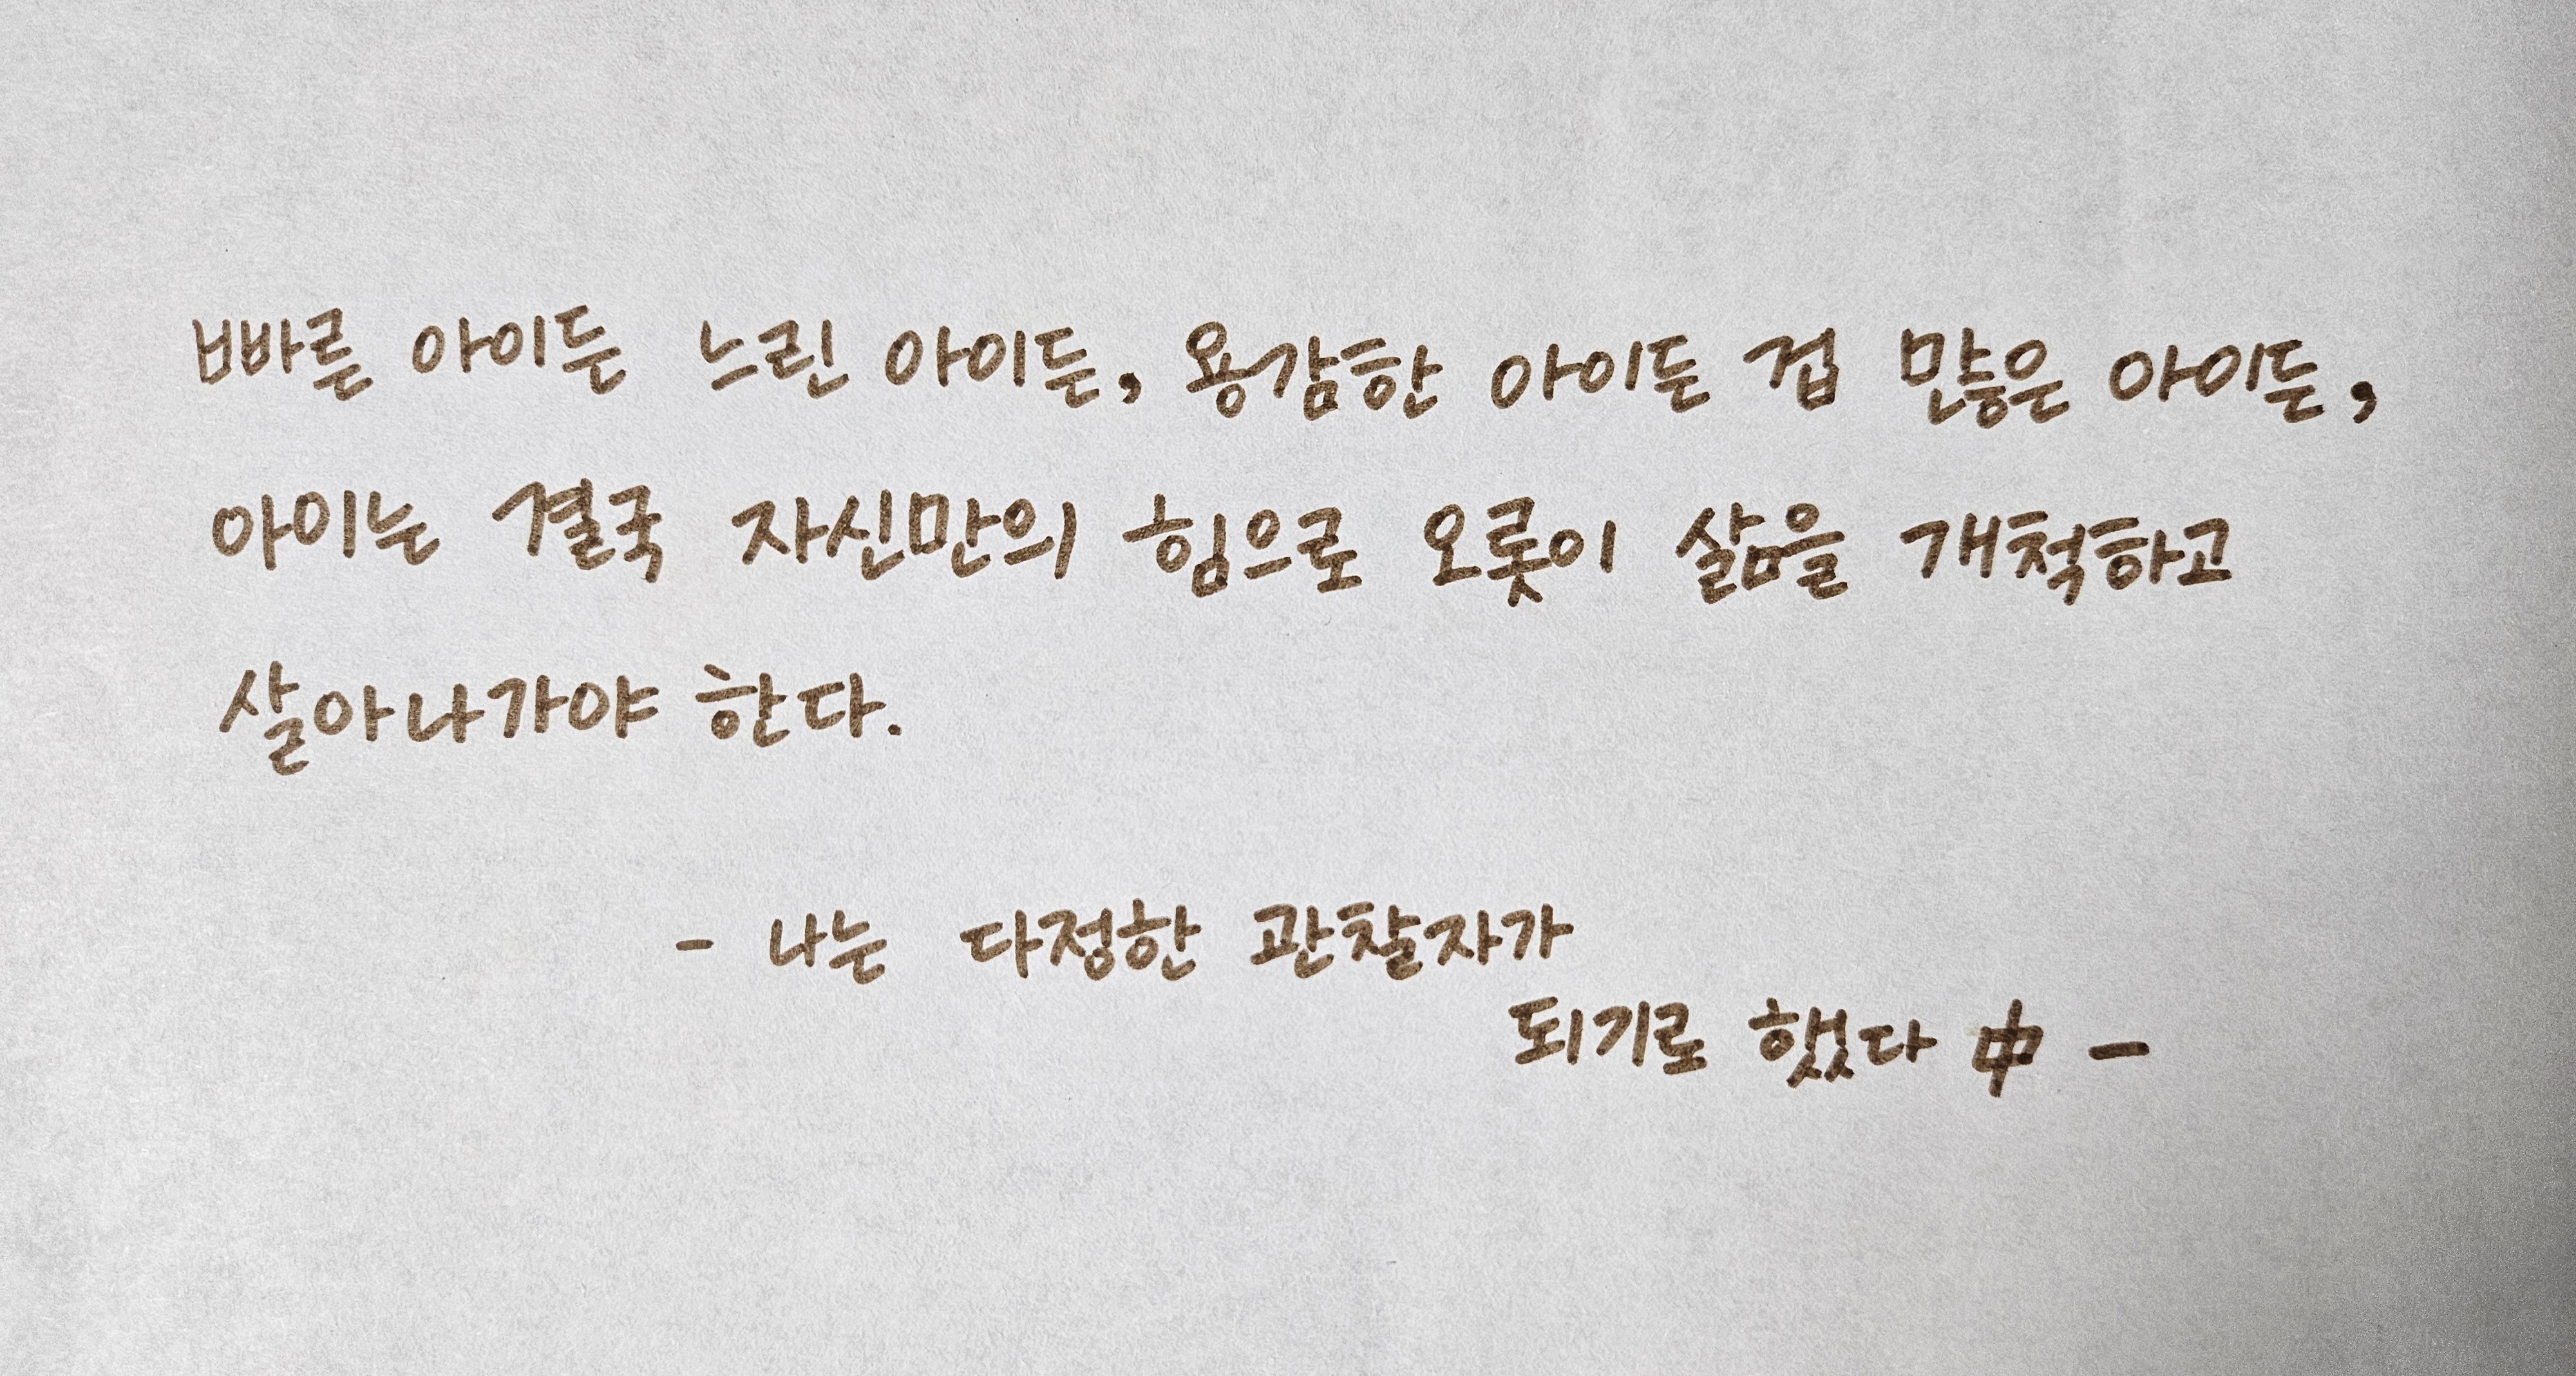 빠른 아이든 느린 아이든, 용감한 아이든 겁 많은 아이든,
아이는 결국 자신만의 힘으로 오롯이 삶을 개척하고
살아나가야 한다.
- 나는 다정한 관찰자가
되기로 했다 中 -